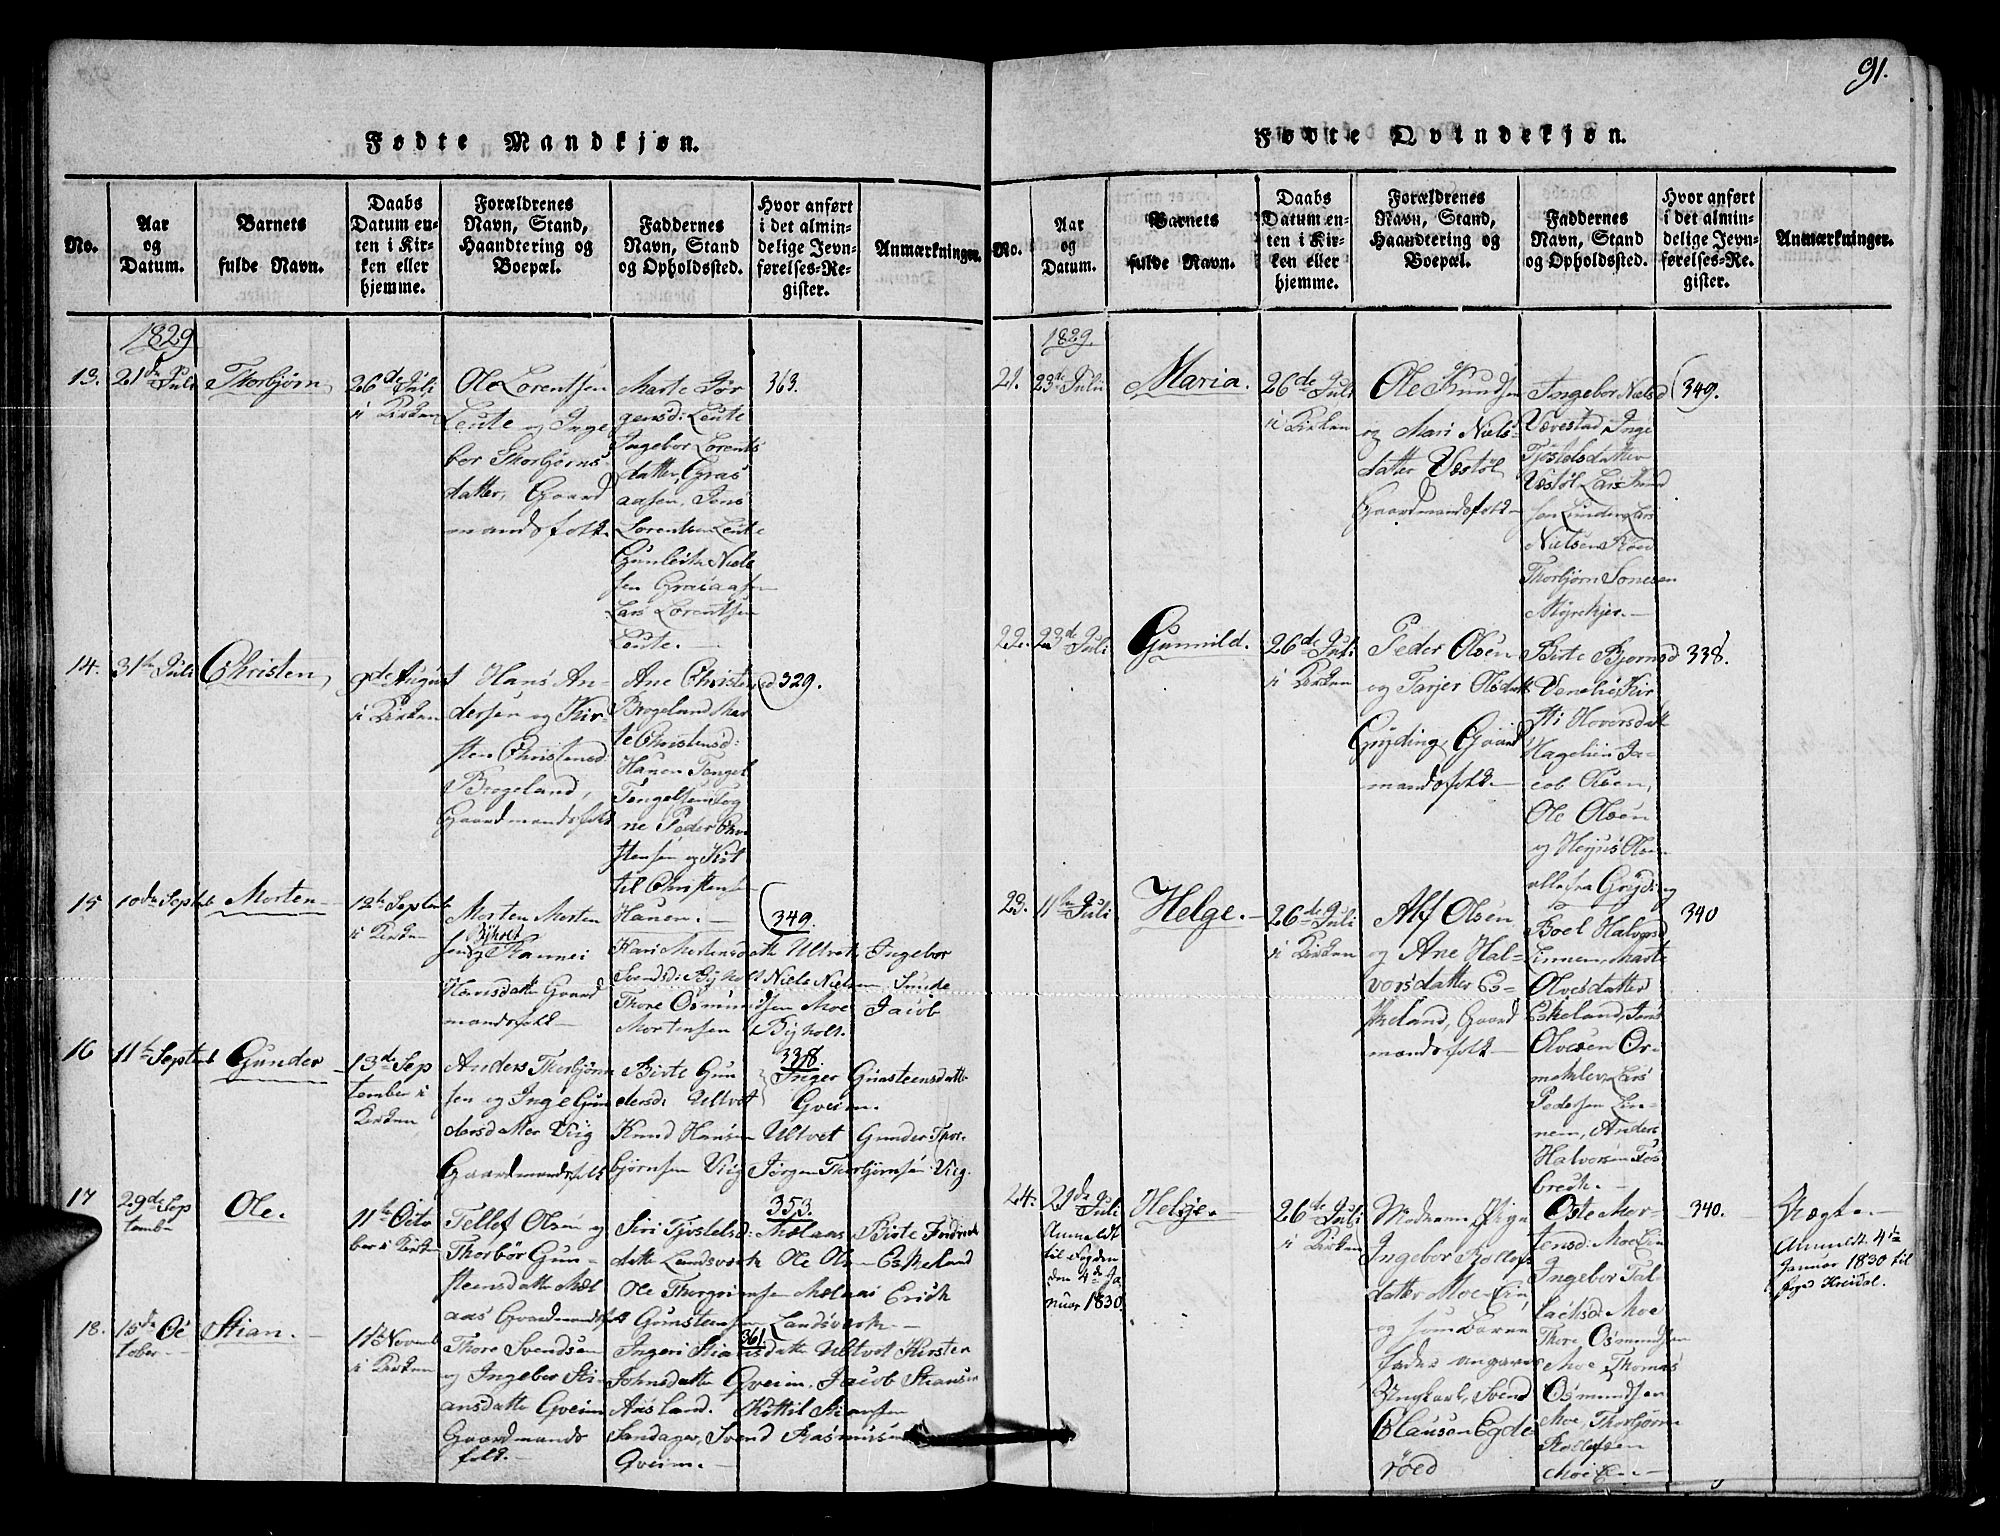 91.
Fødte Mandkjøn.
No.
Aar
og
Datum.
Barnets
fulde Navn.
Daabs
Datum en-
ten i Kir-
ken eller
hjemme.
Forældrenes
Navn, Stand,
Haandtering og
Boepæl.
Faddernes
Navn, Stand
og Opholdssted.
Hvor anført
i det almin-
delige Jevn-
førelses-Re-
gister.
Anmærkninger.
1829
13.
21de Juli
Thorbjørn
26de Juli
i Kirken
Ole Lorentsen
Leute og Inge
bor Thorbjørns-
datter, Gaard
mandsfolk.
Marte Jør
gensd: Leute
Ingebor Lorents
datter, Graa
aasen, Jens
Lorentsen Leute
Gunleik Niel
sen Graaaasen
Lars Lorentsen
Leute.
363.
14.
31te Juli
Christen
9de August
i Kirken
Hans An-
dersen og Kir-
sten Christensd
Brogeland,
Gaardmandsfolk
Ane Christensd
Brogeland Mar
te Christensd:
Hanen Tengel
Tengelsen
ne Peder Chri
stensen og Kist
til Christensen
Hanen.
329.
15
10de Septb
Morten
12te Septemb
i Kirken
Morten Morten
sen Byholt
og Rannei
Hansdatter Gaard
mandsfolk
349.
Kari Mortensdatt Ultvet, Ingebor
Svendsd: Byholt Niels Nielsen, Sunde
Thore Osmundsen Moe Jacob
Mortensen Byholt.
16
11te Septemb
Gunder
13de Sep
tember i
Kirken
Anders Thorbjørn
sen og Inge Gun
dersdatter Viig
Gaardmandsfolk
338.
Birte Gun
dersd: Ultvet
Inger Gunsteensdatte
Gveim.
Knud Hansen Ultvet Gunder Thor-
bjørnsen Viig Jørgen Thorbjørnsen Viig
17
29de Sep
temb
Ole.
11te Octo
ber i Kirken
Tellef Olsen og
Thorbør Gun-
steensdatte Mel
aas Gaardmandsfolk
353.
Siri Tjostelsd: Melaas Birte Fredrick
datte Landsverk Ole Olsen Eskeland
Ole Thorgrimsen Melaas Erich
Gunsteensen Landsverk
18.
15de Oc
tober
Stian.
1te Novemb
i Kirken
Thore Svendsen
og Ingeber Sti-
ansdatte Gveim
Gaardmands
folk.
361.
Ingeri Stiansdatte Ultvet Kirsten
Johnsdatte Gveim, Jacob Stiansen
Aasland. Kittil Stiansen
Sandager, Svend Rasmusen
Gveim.
Fødte Qvindekjøn.
No.
Aar
og
Datum.
Barnets
fulde Navn.
Daabs
Datum en-
ten i Kir-
ken eller
hjemme.
Forældrenes
Navn, Stand,
Haandtering og
Boepæl.
Faddernes
Navn, Stand
og Opholdssted.
Hvor anført
i det almin-
delige Jevn-
førelses-Re-
gister.
Anmærkninger.
1829.
21.
23de Julii
Maria.
26de Juli
i Kirken
Ole Knudsen
og Mari Niels-
datter Vestøl
Gaardmandsfolk
Ingebor Nielsd
Vevestad, Inge
Tjostelsdatter
Vestøl Lars Knud
sen Linden Lars
Nielsen Røed
Thorbjørn Sonesen
Myrekjer.
349.
22.
23de Juli
Gunnild.
26de Juli
i Kirken
Peder Olsen
og Tarjer Olsdatt
Gryding, Gaard
mandsfolk.
Birte Bjornsd
Venelie Kir
sti Hoversdatt
Hagelien Ja-
cob Olsen,
Ole Olsen
og Olsen
alle fra Gryding
338.
23.
11te Juli
Helge.
26de Juli
i Kirken
Alf Olsen
og Ane Hal-
vorsdatter Es-
keland, Gaard
mandsfolk
Boel Halvorsd
Linnem, Marte
Olvesdatter
Eskeland, Jens
Olvesen Or-
mekler, Lars
Pedersen Lin-
nem, Anders
Halvorsen Fos
breck.
340
24.
21de Juli
Anmeldt
til Fogden
den 4de Ja
nuar 1830.
Helje.
26de Juli
i Kirken
Ingebor Rollefs
datter Moe Ein
og som Barne
fader angaves
Ungkarl, Svend
Clausen Egde
røed
Oste Mor-
tensd: Moe Ein
Ingebor Tal
lachsd: Moe
Thore Osmundsen
Moe Thomas
Osmundsen
Moe, Thorbjørn
Rollefsen
Moe Ein
340.
Uægte.
Anmeldt 4de
Januar 1830 til
Foged Heidal.